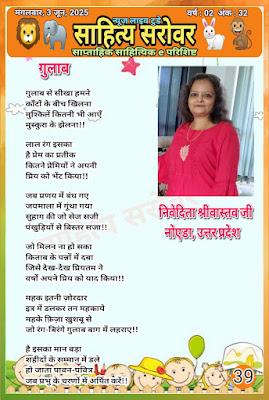 मंगलवार, 3 जून, 2025
वर्ष : 02 अंक : 32
न्यूज लाइव टुडे
साहित्य सरोवर
साप्ताहिक साहित्यिक e परिशिष्ट
गुलाब
गुलाब से सीखा हमने
काँटों के बीच खिलना
मुश्किलें कितनी भी आएँ
मुस्कुरा के झेलना!!
लाल रंग इसका
है प्रेम का प्रतीक
कितने प्रेमियों ने अपनी
प्रिय को भेंट किया!!
जब प्रणय में बंध गए
जयमाला में गूंथा गया
सुहाग की जो सेज सजी
पंखुड़ियों से बिस्तर सजा!!
जो मिलन ना हो सका
किताब के पन्नों में दबा
जिसे देख-देख प्रियतम ने
वर्षों अपने प्रिय को याद किया!!
महक इतनी ज़ोरदार
इत्र में डलकर तन महकाये
महके फ़िज़ा खुशबू से
जो रंग-बिरंगे गुलाब बाग में लहराए!!
है इसका मान बड़ा
शहीदों के सम्मान में डले
हो जाता पावन-पवित्र
जब प्रभु के चरणों में अर्पित करें!!
निवेदिता श्रीवास्तव जी
नोएडा, उत्तर प्रदेश
39